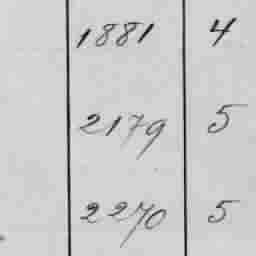 1881 4
2179 5
2270 5